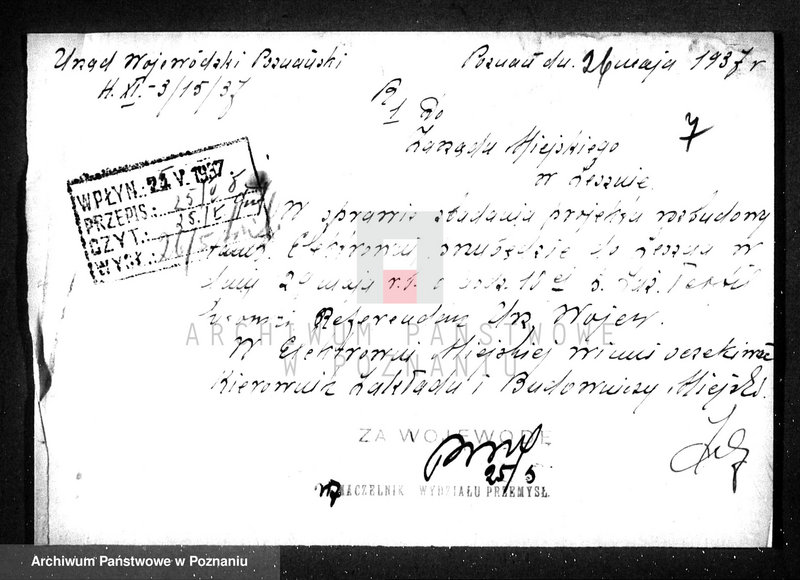 Urząd Wojewódzki Poznański
H. XI.-3/15/37
Poznań dn. 26 maja 1937 r
R
1 Do
Zarządu Miejskiego
w Lesznie
7
WPŁYN.: 24 V. 1937
PRZEPIS.:
CZYT.:
WYSŁ.:
W sprawie zbadania projektu rozbudowy
Elektrowni przybędzie do Leszna w
dniu 29 maja r.b. o godz. 10 Inż.
Referendarz Urz. Wojew.
W Elektrowni Miejskiej winni oczekiwać
Kierownik Zakładu i Budowniczy Miejski.
ZA WOJEWODĘ
25/5
NACZELNIK WYDZIAŁU PRZEMYSŁ.
ARCHIWUM PAŃSTWOWE
W POZNANIU
Archiwum Państwowe w Poznaniu